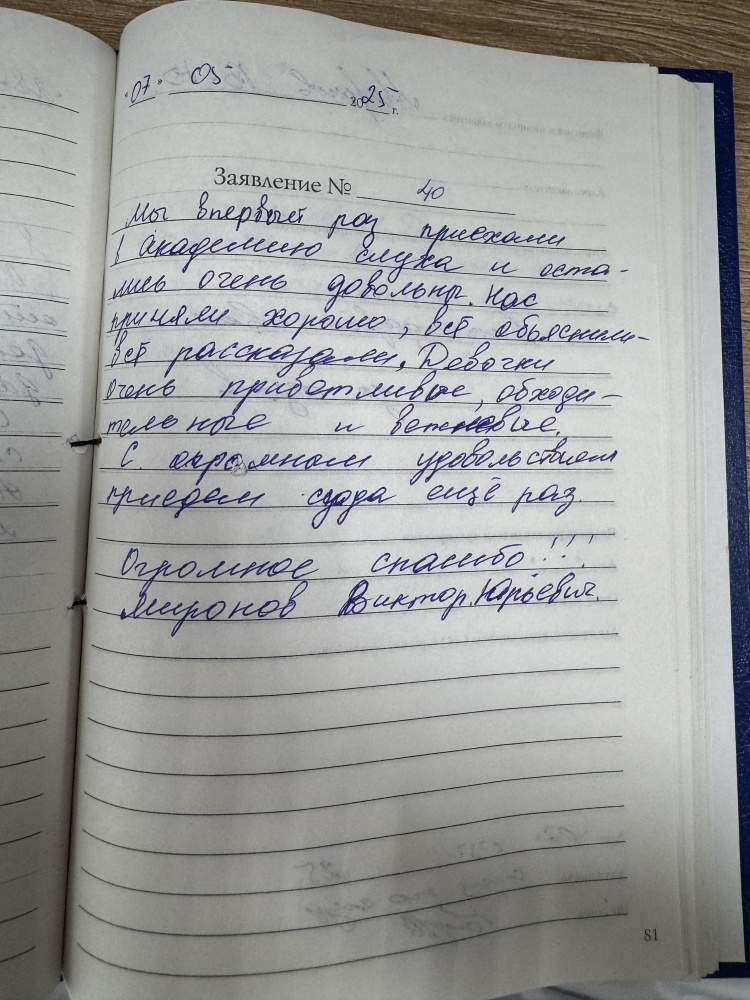 "07" 05 2025 г.
Заявление № 40
Мы впервыет раз приехали
в Академию слуха и оста-
лись очень довольны. Нас
приняли хорошо, всё объяснили
всё рассказали. Девочки
очень приветливые, обходи-
тельные и вежневые.
С огромном удовольствием
приедем сюда ещё раз.
Огромное спасибо!!!
Миронов Виктор Юрьевич.
81